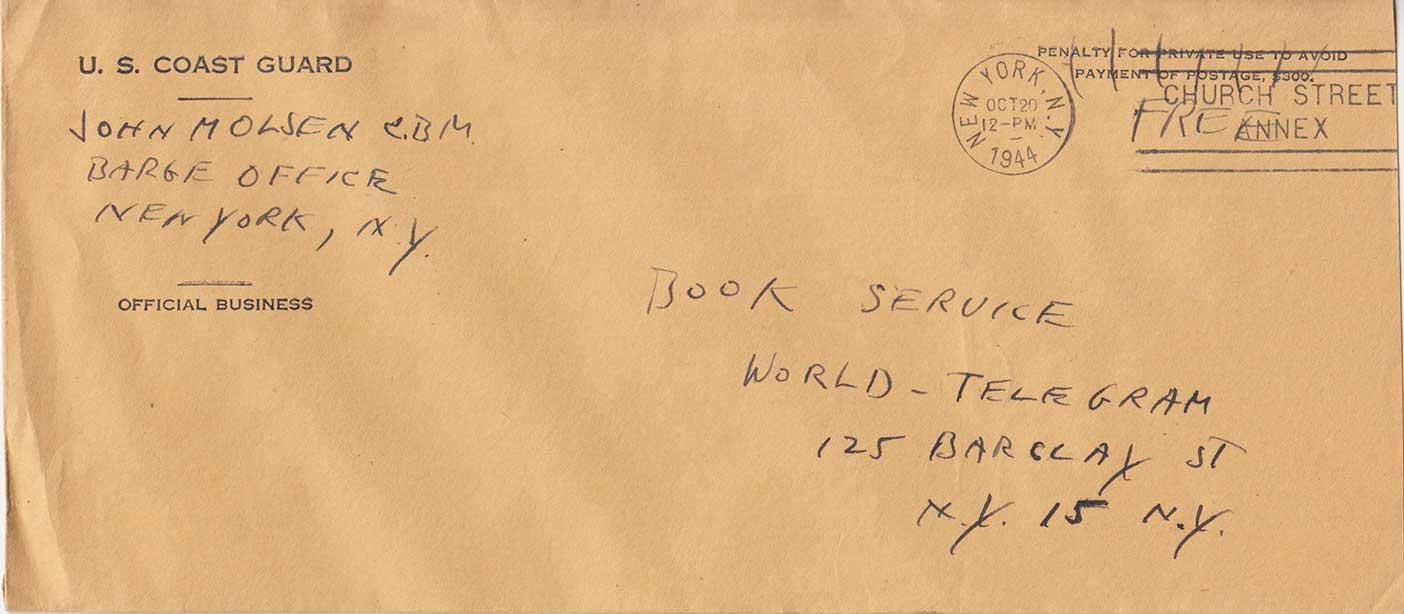 U. S. COAST GUARD
JOHN MOLSEN C.BM.
BARGE OFFICE
NEW YORK, N.Y.
OFFICIAL BUSINESS
PENALTY FOR PRIVATE USE TO AVOID
PAYMENT OF POSTAGE, $300.
NEW YORK, N.Y.
OCT 20
12-PM
1944
CHURCH STREET
ANNEX
FREE
BOOK SERVICE
WORLD - TELEGRAM
125 BARCLAY ST
N.Y. 15 N.Y.